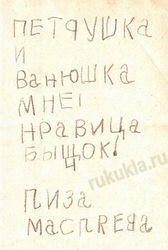 ПЕТЯУШКА
И
ВАНЮШКА
МНЕ
НРАВИЦА
БЫЩОК!
Ч
ЛИЗА
МАСЛЯЕВА
rukukla.ru